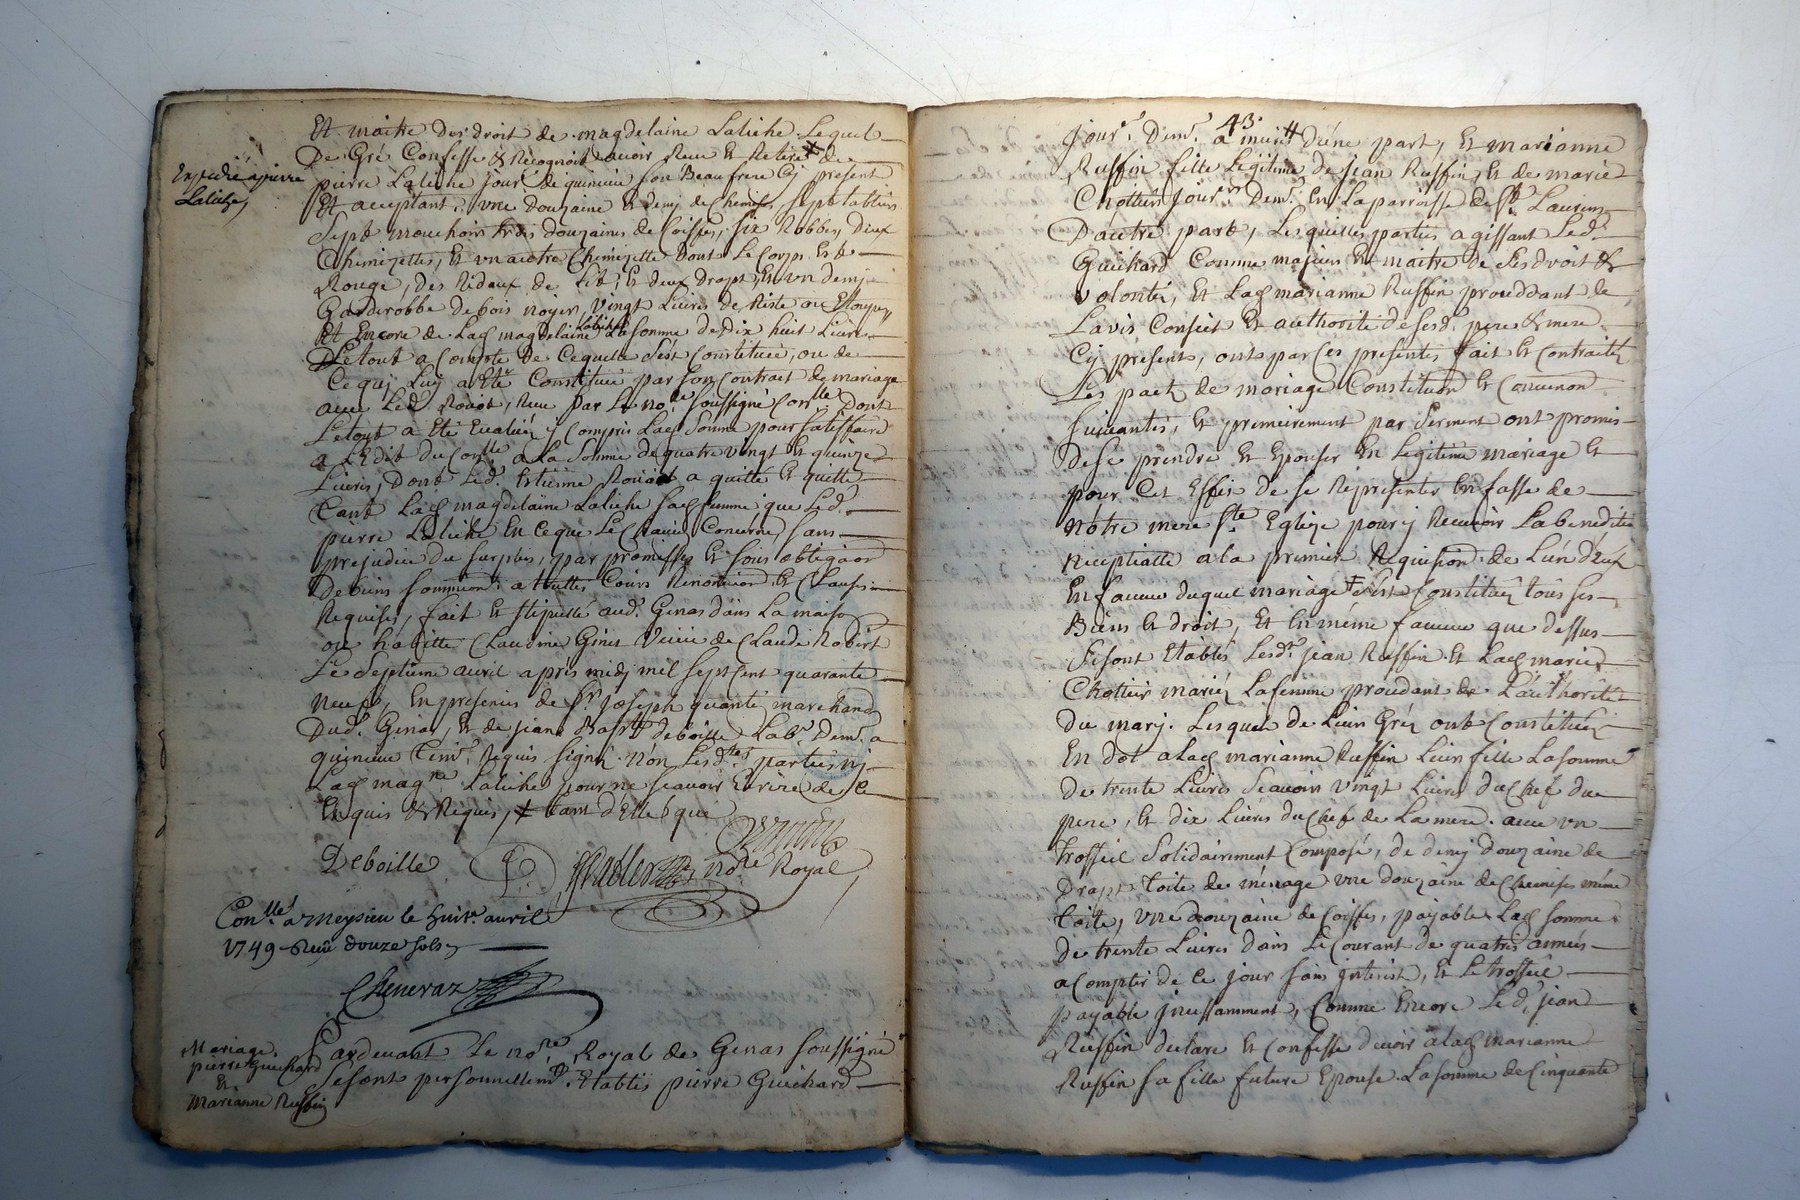 Et maitre des droit de magdelaine Laliche Lequel
De Gré Confesse & Recognoit avoir Reeu et Retiré ⵐ de
Expedié a pierre
Laliche
pierre Laliche jour.r de quincieu son Beaufrere Cy present
Et acceptant, une douzaine & demy de chemises, sept tabliers
Sept mouchoirs trois douzaines de Coiffes, six Robbes, deux
Chemizettes, Et un autre Chemizette dont Le Corps Est
Rouge, des Rideaux de Lit, Et deux Draps, En un demy
Garderobbe de bois noyer, vingt Livres de Riste ou Etoupes
Et Encore de Lad magdelaine Laliche La somme de dix huit Livres
Le tout a Compte de Ce quelle s'est Constituée, ou de
Ce quj Luy a Eté Constitué par son Contrait de mariage
avec Led. Roüat, Receu par Le no.re soussigné Con.llé Dont
Le tout a Eté Evalué y Compris Lad Somme pour satisfaire
a L'Edit du Con.lle a La Somme de quatre vingt Et quinze
Livres, Dont Led. Estienne Roüat a quitté Et quitte
tant Lad magdelaine Laliche sad femme que Led.
pierre Laliche En Ce que Le Chacun Concerne, sans
prejudice du surplus, par promesses Et sous obligaon
De biens soumission a toutes Cours Renonciaon & Clauses
Requises, fait Et stipullé aud. Genas dans La maison
ou habitte Claudine Ginet Veuve de Claude Robert
Le Septieme avril apres midj mil sept Cent quarante
neuf, En presences de S.r joseph quantin marchand
Dud. Genas, Et de jean Bap.tt deboille Lab.r Dem.t a
quincieu temr. Requis Signé non Lesd.tes parties nj
Lad mag.ne Laliche pour ne scavoir Ecrire de ce
Enquis & Requis, ⵐ tant d'Elle que
Deboille no.re Royal
Con.llé a Meysieu le huit.e avril
1749 Reeu douze sols
Cheneraz
Mariage
pierre Guichard
Et
Marianne Ruffin
Pardevant Le no.re Royal de Genas soussigné
Se sont personnellem.t Etablis pierre Guichard
43.
Jour.r Dem.t a d'une part, Et marianne
Ruffin fille Legitime de jean Ruffin, Et de marie
Chottier Jour.rs Dem.t En La parroisse de S.t Laurens
D'autre part, Lesquelles parties agissant Led.
Guichard Comme majeur Et maitre de ses droit &
volonté, Et Lad marianne Ruffin proceddant de
L'avis Conseit Et authorité de sesd. pere & mere
Cy presents, ont par Ces presentes fait Et Contraité
Les pact de mariage Constituon Et Convenon
Suivantes, Et premierement par Serment ont promis
De se prendre Et Epouser En Legitime mariage Et
pour Cet Effet de se Representer En fasse de
Nôtre mere S.te Eglize pour y Recevoir La benedition
Nuptialle a la premiere Requision de L'un d'eux
En faveur duquel mariage ⵐ s'est Constitué tous ses
Biens Et droit, Et En même faveur que dessus
Se sont Etablis Lesd.s jean Ruffin Et Lad marie
Chottier mariés La femme proceddant de L'authorité
Du mary. Lesquels de Leur Gré ont Constitué
En dot a Lad marianne Ruffin Leur fille La somme
De trente Livres Scavoir vingt Livres du Chef du
pere, Et dix Livres du Chef de La mere avec un
trosseil Solidairement Composé, de demy douzaine de
Draps toile de ménage une douzaine de Chemises même
toile, une douzaine de Coiffes, payable Lad somme
De trente Livres dans Le Courant de quatre années
a Compter de Ce jour sans jnterest, Et Le trosseil
payable jncessamment, Comme Encore Led. jean
Ruffin declare Et Confesse devoir a Lad marianne
Ruffin sa fille future Epouse La somme de Cinquante